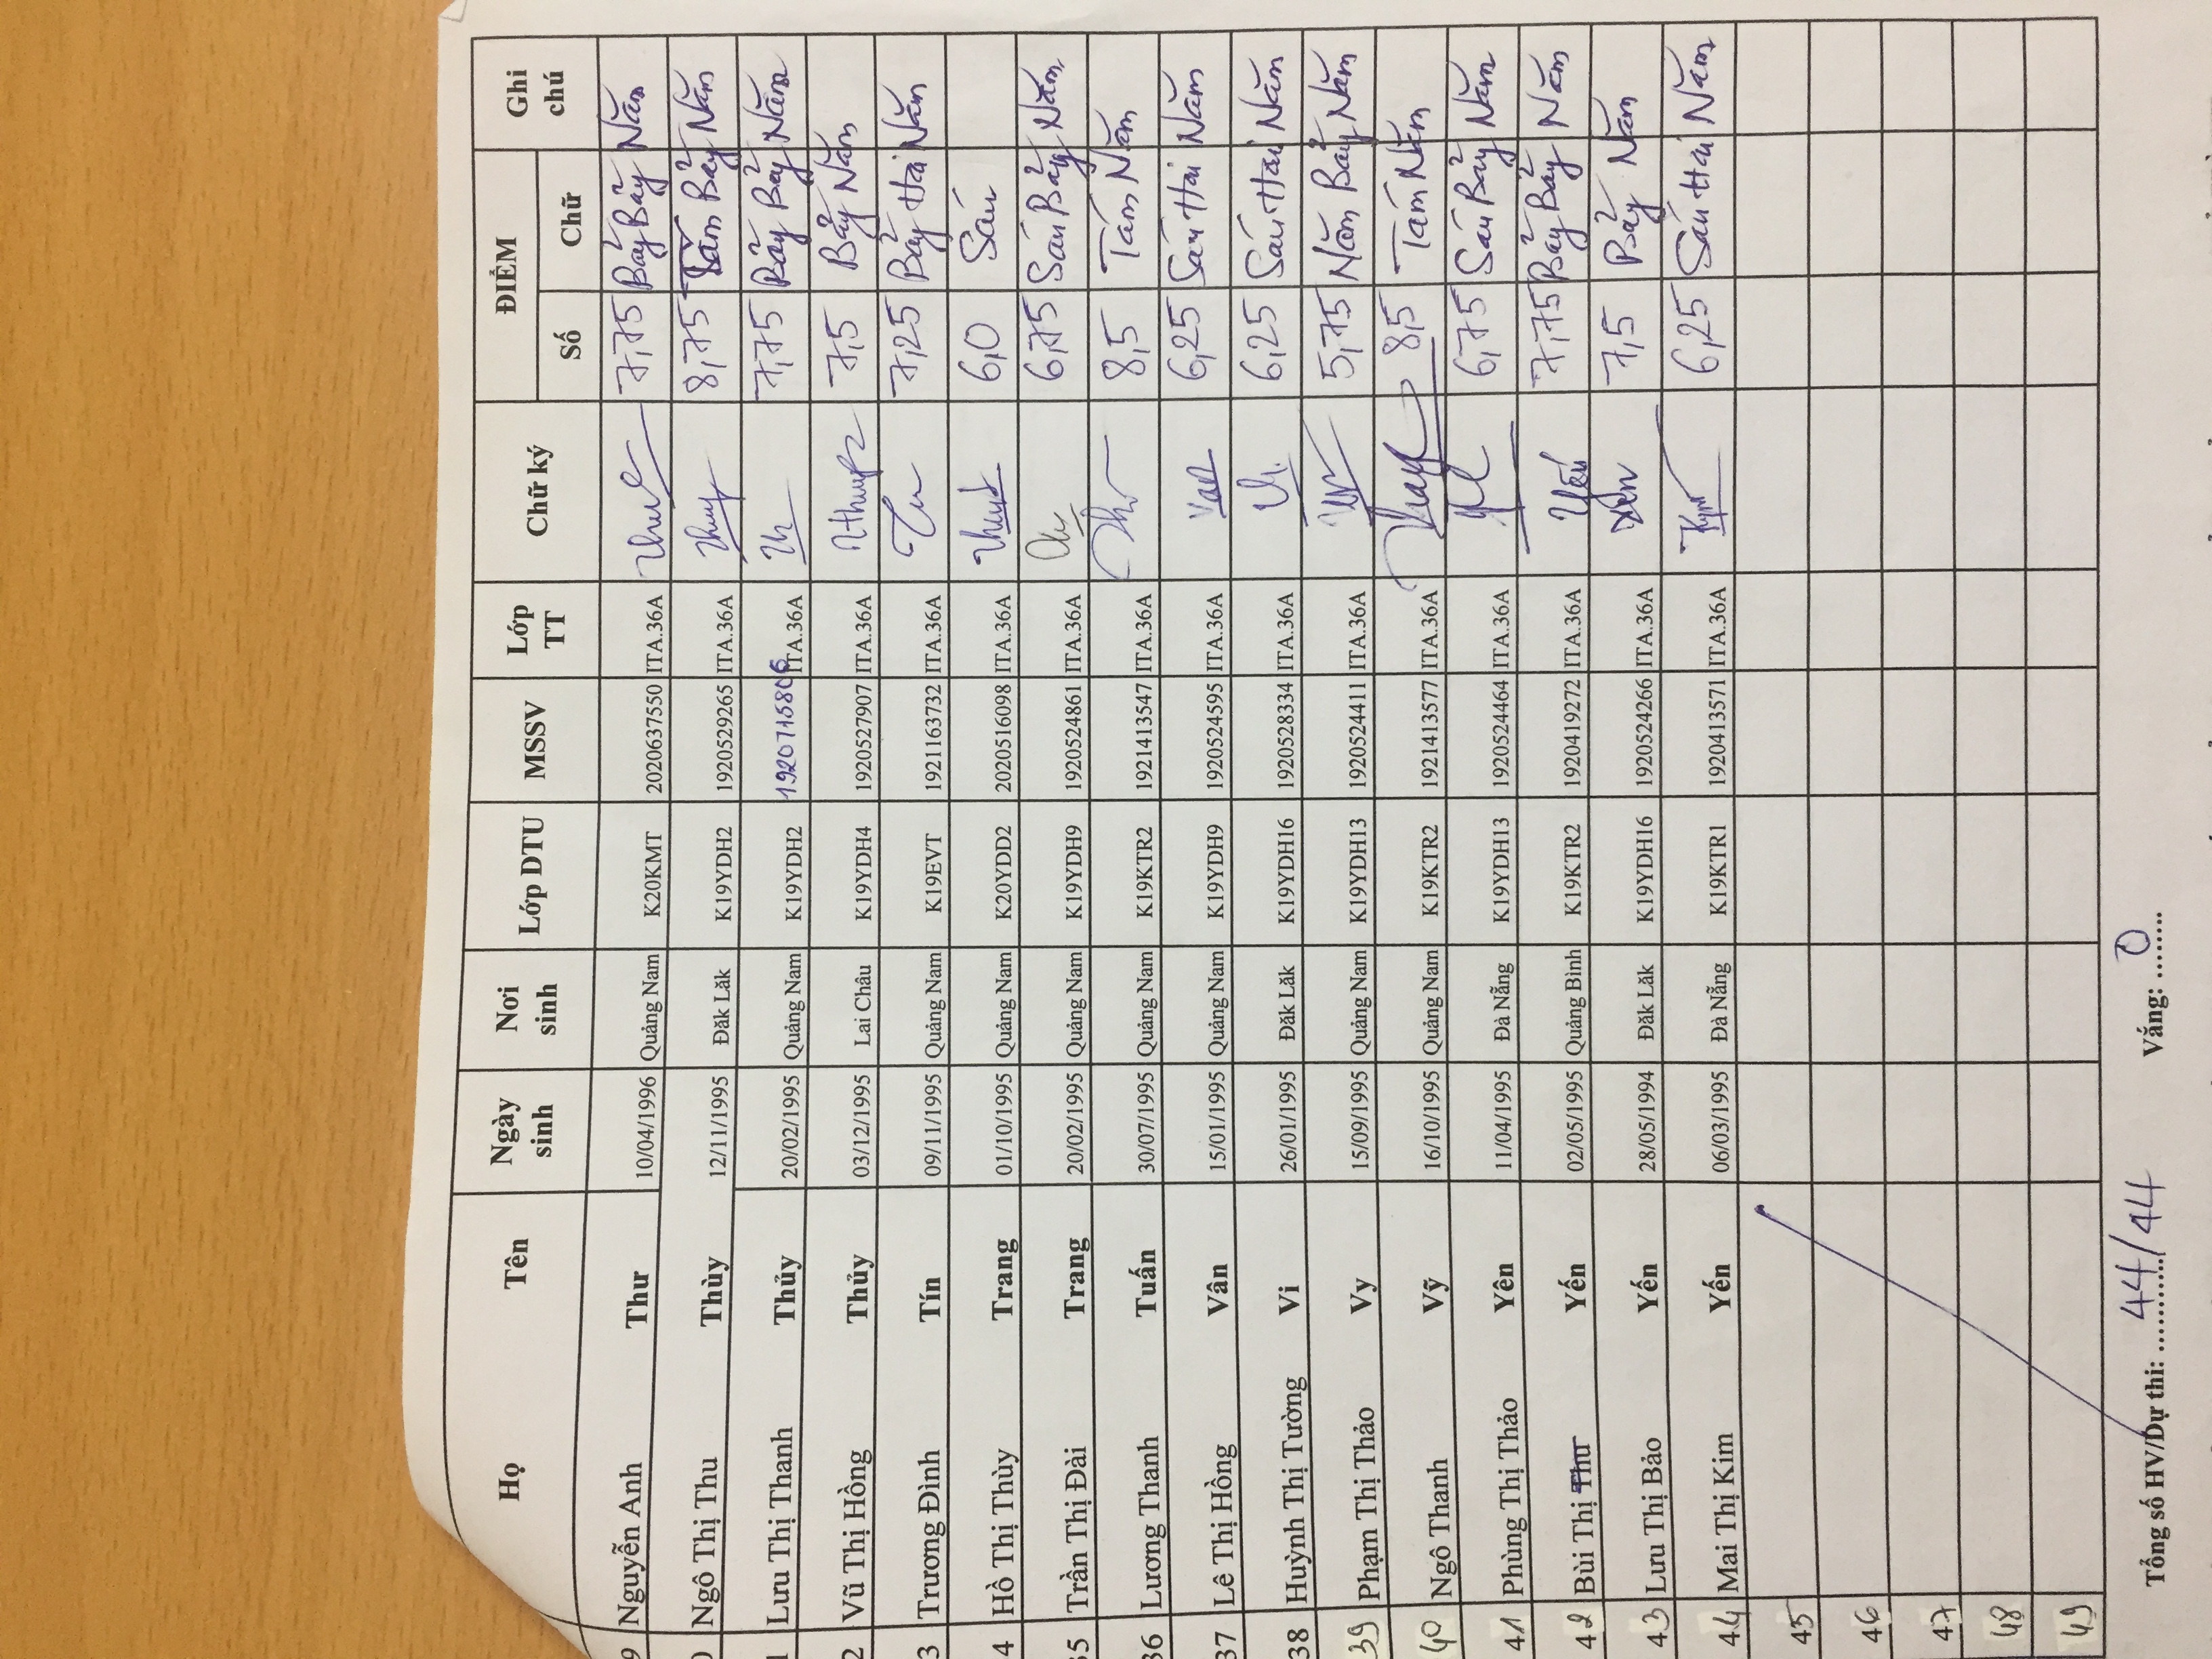 Họ Tên Ngày sinh Nơi sinh Lớp DTU MSSV Lớp TT Chữ ký ĐIỂM Ghi chú
Số Chữ
9 Nguyễn Anh Thư 10/04/1996 Quảng Nam K20KMT 2020637550 ITA.36A 7,75 Bảy Bảy Năm
0 Ngô Thị Thu Thùy 12/11/1995 Đăk Lăk K19YDH2 1920529265 ITA.36A Thuy 8,75 Tám Bảy Năm
1 Lưu Thị Thanh Thủy 20/02/1995 Quảng Nam K19YDH2 1920715806 ITA.36A 7,75 Bảy Bảy Năm
2 Vũ Thị Hồng Thủy 03/12/1995 Lai Châu K19YDH4 1920527907 ITA.36A 7,5 Bảy Năm
3 Trương Đình Tín 09/11/1995 Quảng Nam K19EVT 1921163732 ITA.36A 7,25 Bảy Hai Năm
4 Hồ Thị Thùy Trang 01/10/1995 Quảng Nam K20YDD2 2020516098 ITA.36A 6,0 Sáu
35 Trần Thị Đài Trang 20/02/1995 Quảng Nam K19YDH9 1920524861 ITA.36A 6,75 Sáu Bảy Năm
36 Lương Thanh Tuấn 30/07/1995 Quảng Nam K19KTR2 1921413547 ITA.36A 8,5 Tám Năm
37 Lê Thị Hồng Vân 15/01/1995 Quảng Nam K19YDH9 1920524595 ITA.36A Van 6,25 Sáu Hai Năm
38 Huỳnh Thị Tường Vi 26/01/1995 Đăk Lăk K19YDH16 1920528334 ITA.36A Vi 6,25 Sáu Hai Năm
39 Phạm Thị Thảo Vy 15/09/1995 Quảng Nam K19YDH13 1920524411 ITA.36A 5,75 Năm Bảy Năm
40 Ngô Thanh Vỹ 16/10/1995 Quảng Nam K19KTR2 1921413577 ITA.36A 8,5 Tám Năm
41 Phùng Thị Thảo Yên 11/04/1995 Đà Nẵng K19YDH13 1920524464 ITA.36A 6,75 Sáu Bảy Năm
42 Bùi Thị Thu Yến 02/05/1995 Quảng Bình K19KTR2 1920419272 ITA.36A Yến 7,75 Bảy Bảy Năm
43 Lưu Thị Bảo Yến 28/05/1994 Đăk Lăk K19YDH16 1920524266 ITA.36A 7,5 Bảy Năm
44 Mai Thị Kim Yến 06/03/1995 Đà Nẵng K19KTR1 1920413571 ITA.36A 6,25 Sáu Hai Năm
45
46
47
48
49
Tổng số HV/Dự thi: 44/44 Vắng: 0